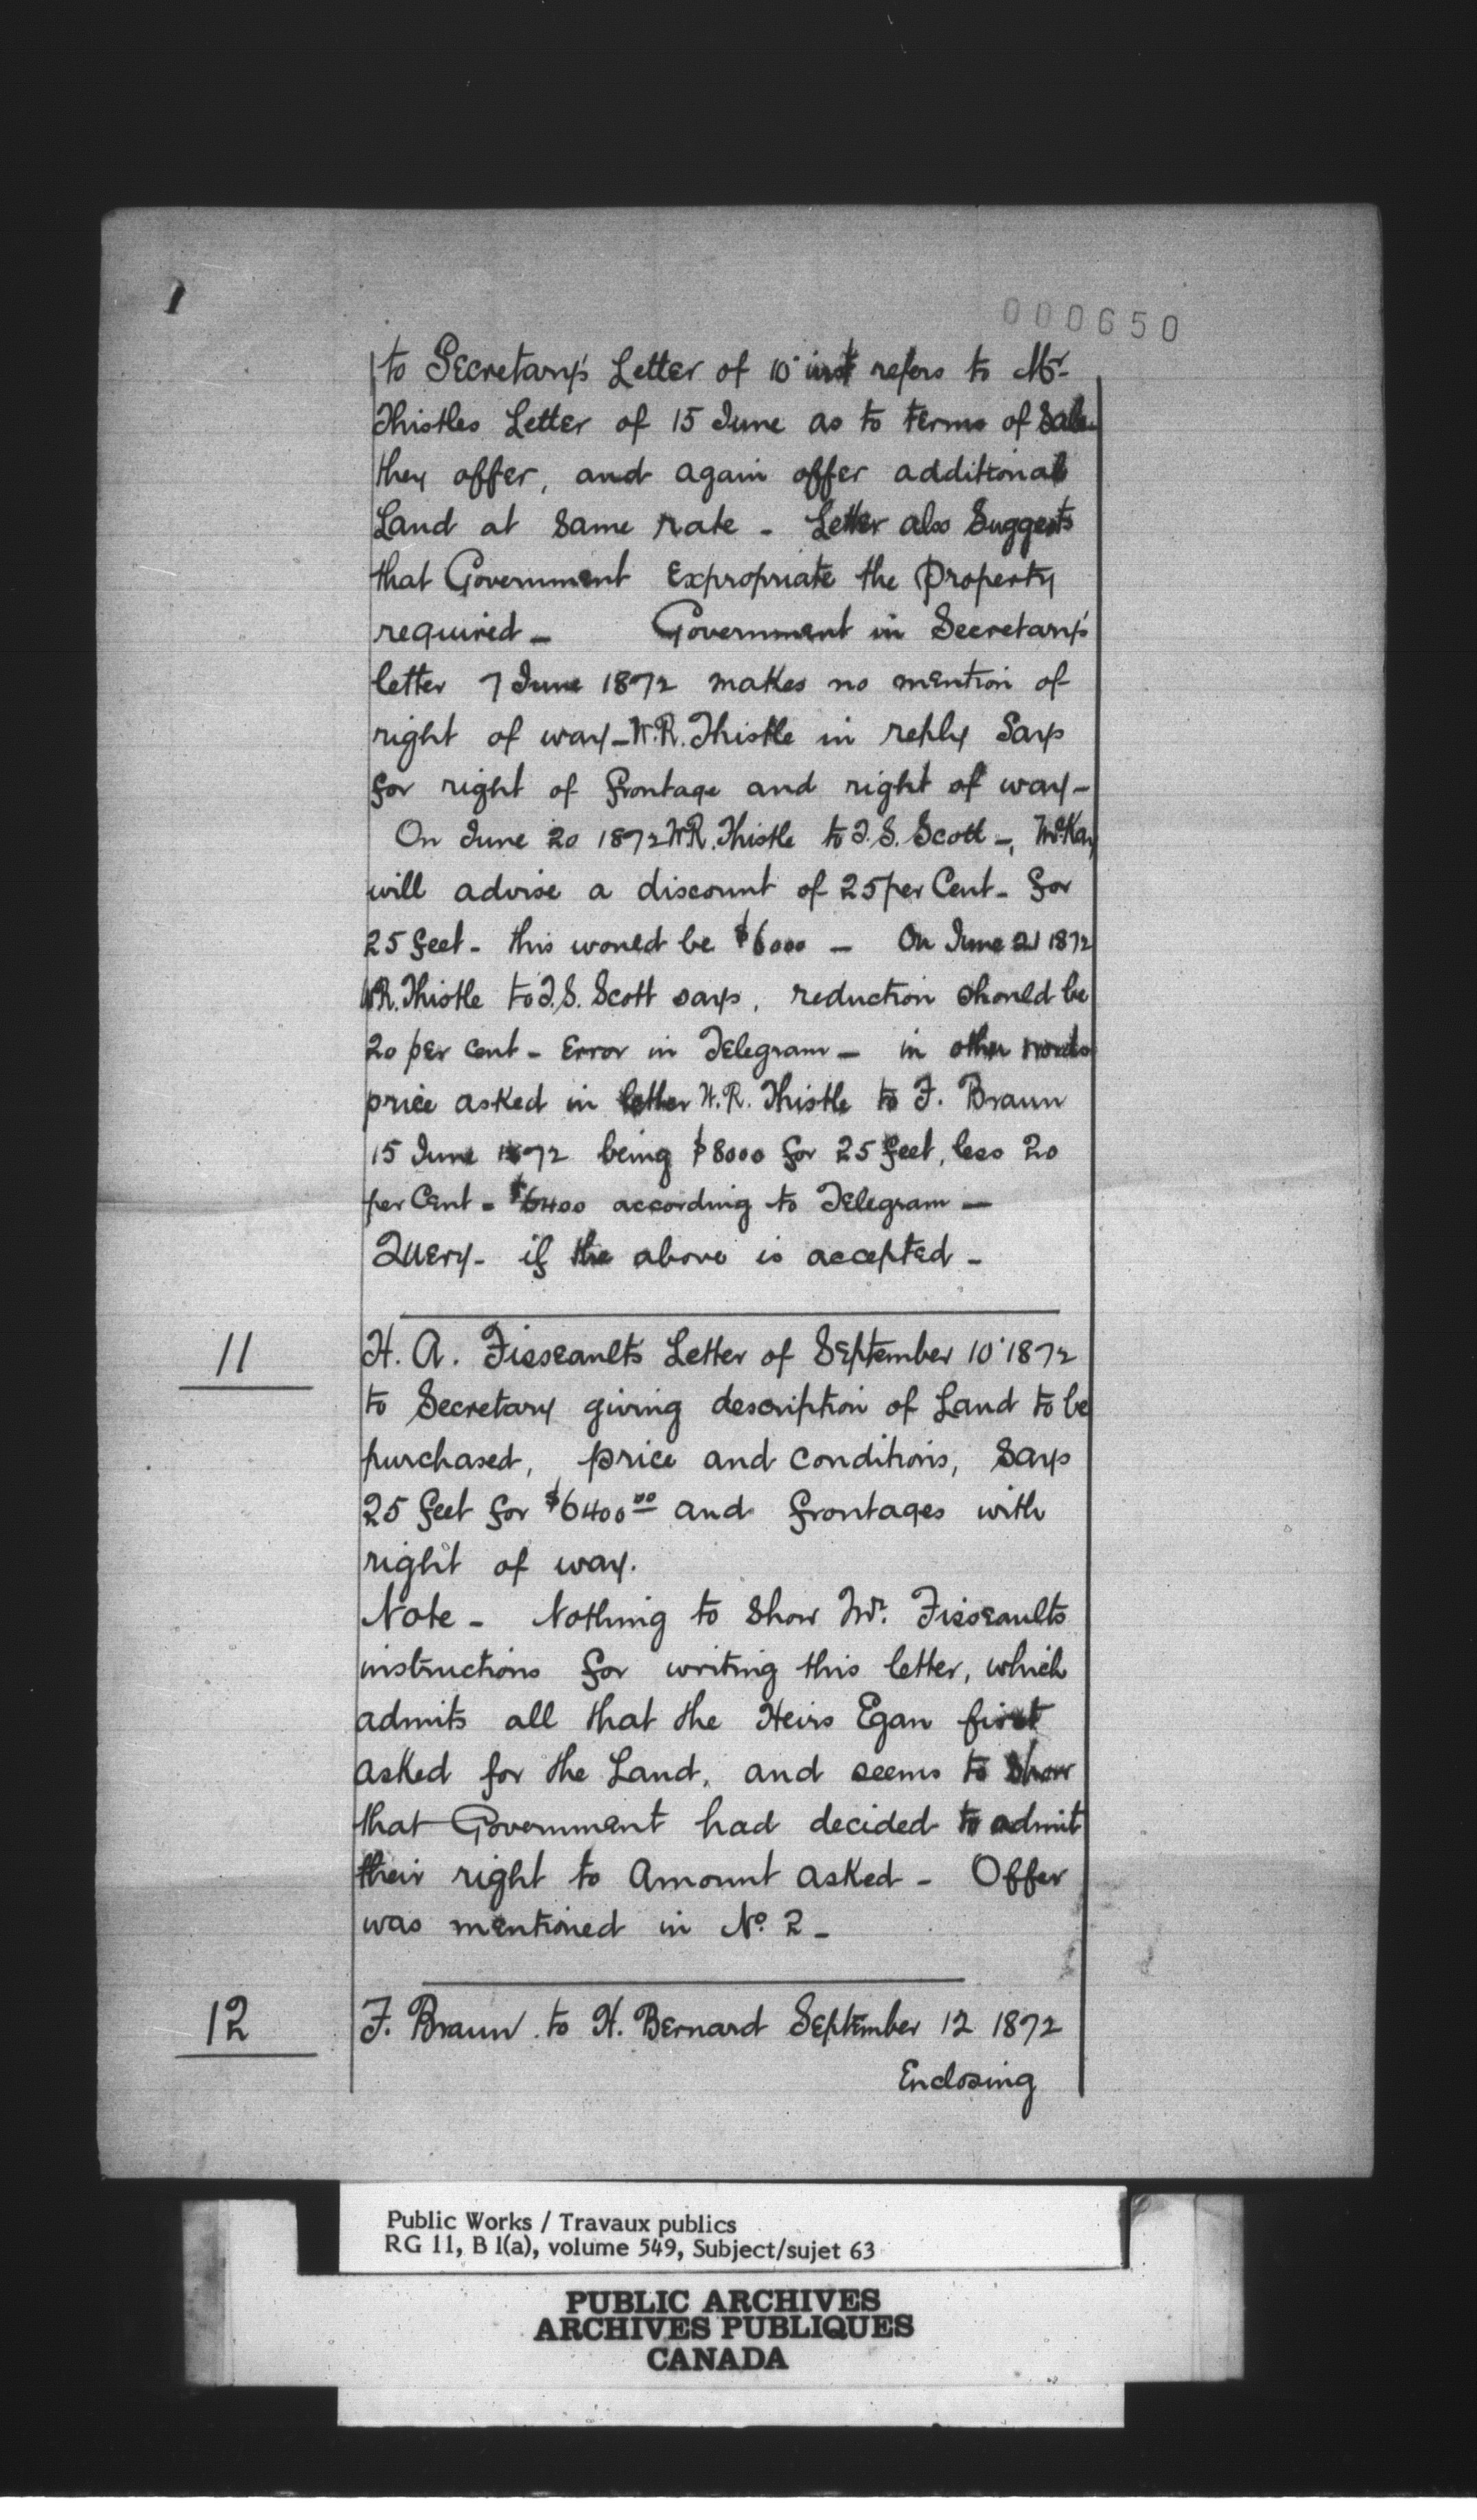 000650
to Secretary's Letter of 10th inst refers to Mr.
Thistles Letter of 15 June as to terms of Sale
they offer, and again offer additional
Land at same rate - Letter also Suggests
that Government Expropriate the Property
required - Government in Secretary's
letter 7 June 1872 makes no mention of
right of way - W.R. Thistle in reply Says
for right of frontage and right of way -
On June 20 1872 W.R. Thistle to T.S. Scott -, McKay
will advise a discount of 25 per Cent - for
25 feet - this would be $6000 - On June 21 1872
W.R. Thistle to T.S. Scott says, reduction should be
20 per cent - Error in Telegram - in other words
price asked in letter W.R. Thistle to F. Braun
15 June 1872 being $8000 for 25 feet, less 20
per Cent - $6400 according to Telegram -
Query - if the above is accepted -
11
H. A. Fisseault's Letter of September 10th 1872
to Secretary giving description of Land to be
purchased, price and conditions, Says
25 feet for $6400 00 and frontages with
right of way.
Note - Nothing to show Mr. Fisseaults
instructions for writing this letter, which
admits all that the Heirs Egan first
asked for the Land, and seems to show
that Government had decided to admit
their right to Amount asked - Offer
was mentioned in No. 2 -
12
F. Braun to H. Bernard September 12 1872
Enclosing
Public Works / Travaux publics
RG 11, B 1(a), volume 549, Subject/sujet 63
PUBLIC ARCHIVES
ARCHIVES PUBLIQUES
CANADA